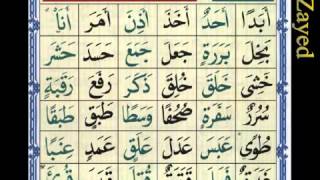 أَبَدًا أَحَدٌ أَخَذَ أَذِنَ أَمَرَ أَنَا۠
بَخِلَ بَرَرَةٍ جَعَلَ جَمَعَ حَسَدَ حَشَرَ
خَشِيَ خَلَقَ خُلِقَ ذَكَرَ رَفَعَ رَقَبَةٍ
سُرُرٌ سَفَرَةٍ صُحُفًا وَسَطًا طَبَقٍ طَبَقًا
طُوًى عَبَسَ عَدَلَ عَلَقٍ عَمَدٍ عِنَبًا
Zayed